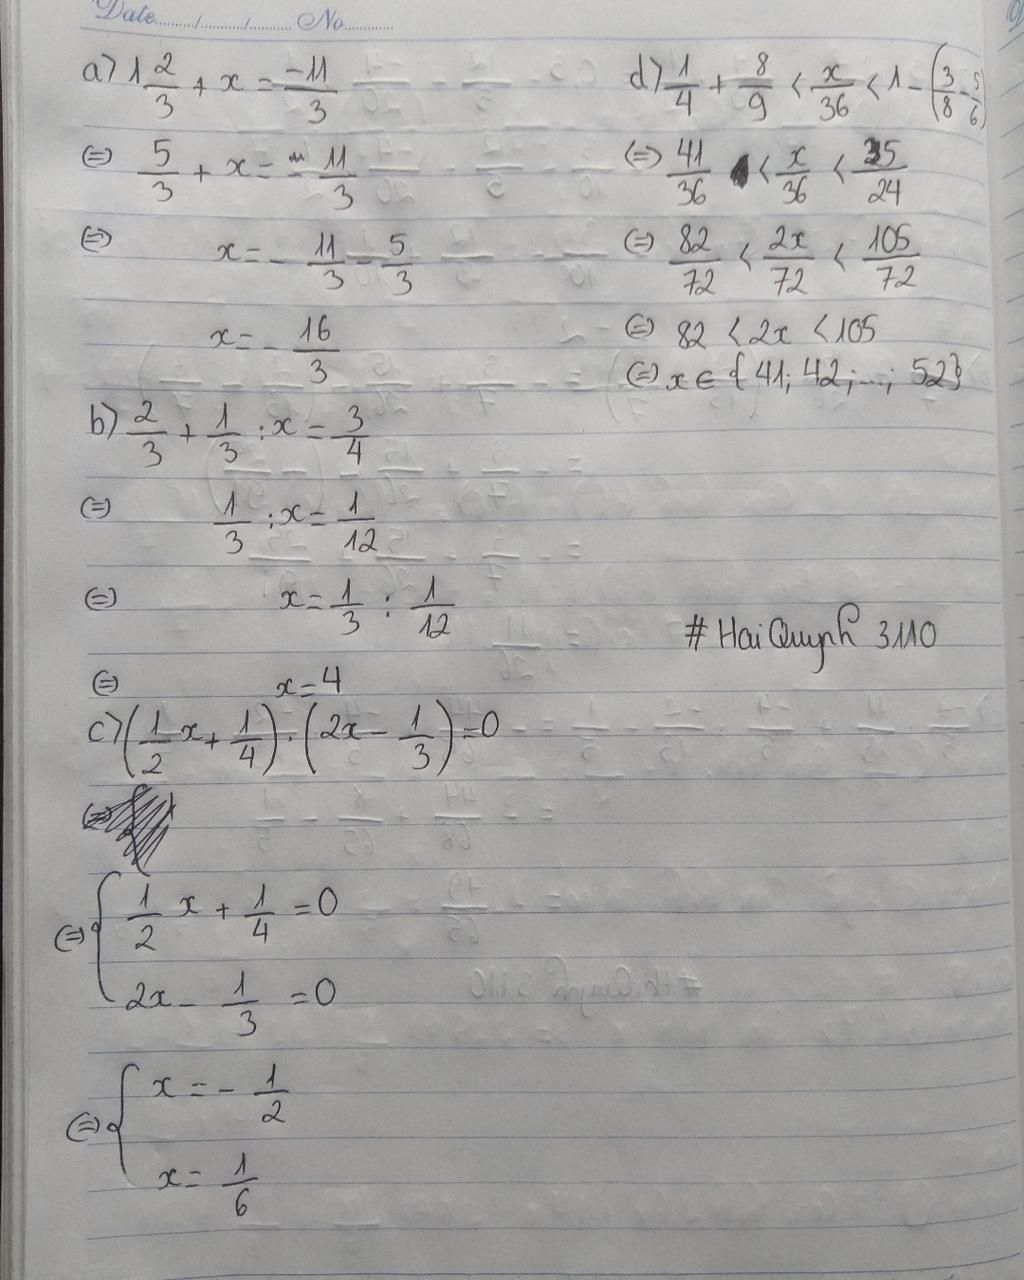 Date......../......../........ No.............
a) 1 2/3 + x = -11/3
(=) 5/3 + x = - 11/3
(=) x = - 11/3 - 5/3
x = - 16/3
b) 2/3 + 1/3 : x = 3/4
(=) 1/3 : x = 1/12
(=) x = 1/3 : 1/12
(=) x = 4
c) (1/2 x + 1/4) . (2x - 1/3) = 0
(=) { 1/2 x + 1/4 = 0
2x - 1/3 = 0
(=) { x = - 1/2
x = 1/6
d) 1/4 + 8/9 < x/36 < 1 - (3/8 - 5/6)
(=) 41/36 < x/36 < 35/24
(=) 82/72 < 2x/72 < 105/72
(=) 82 < 2x < 105
(=) x ∈ { 41; 42; ...; 52}
# HaiQuynh 3110